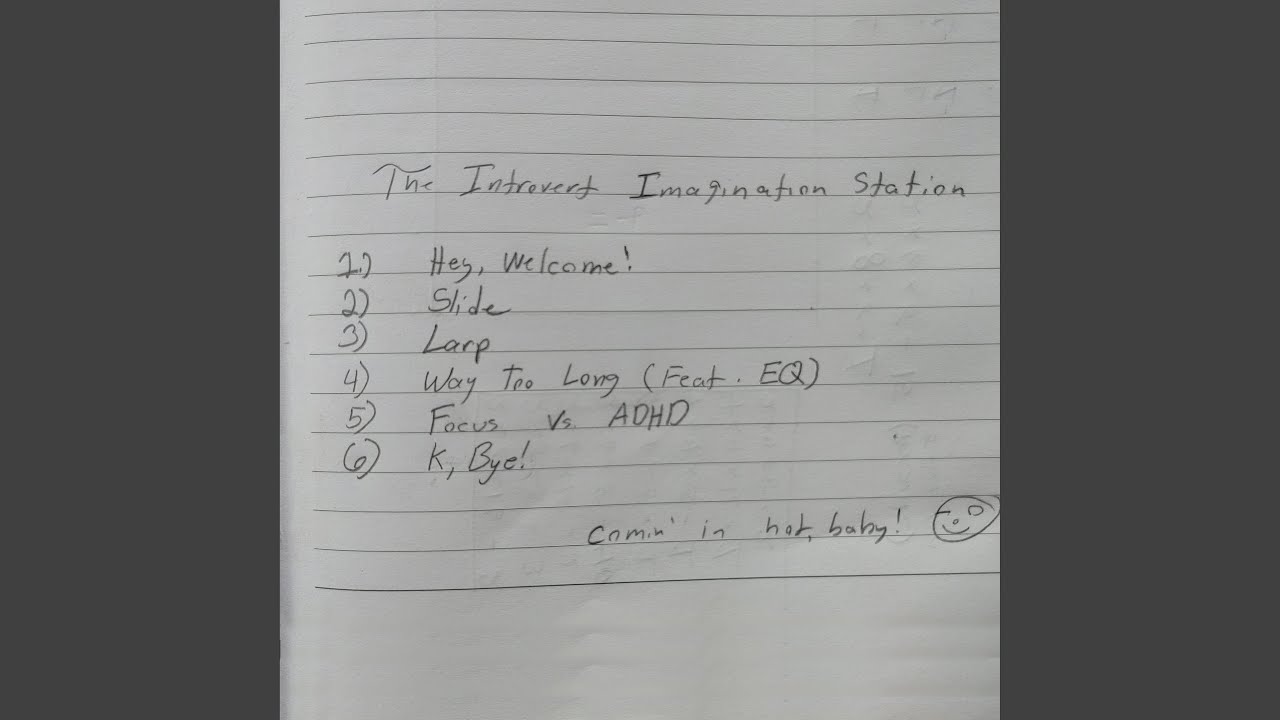 The Introvert Imagination Station
1.) Hey, Welcome!
2) Slide
3) Larp
4) Way Too Long (Feat. EQ)
5) Focus Vs. ADHD
6) K, Bye!
Comin' in hot, baby!